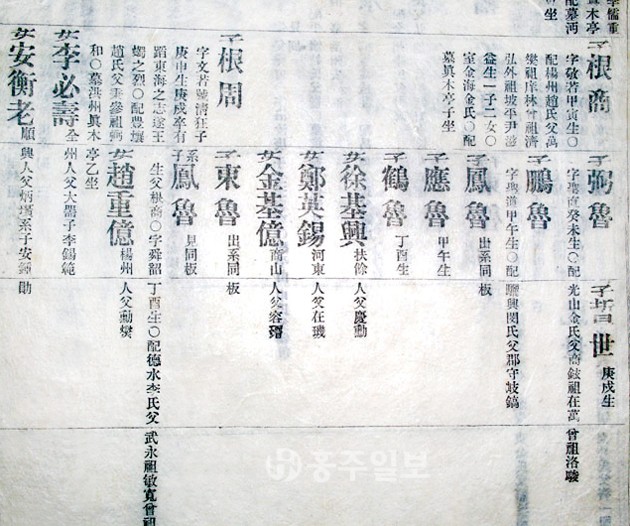 子根商
字敬若甲寅生○
配楊州趙氏父萬
弘外祖坡平尹滋
益生一子二女○
室金海金氏○配
墓眞木亭子坐
子根周
庚申生庚戌卒有
蹈東海之志遂王
蠋之烈○配豊壤
和○墓洪州眞木
亭乙坐
女李必壽
全州人父大諤子李錫範
女安衡老
順興人父炳
子弼魯
癸未生○配
光山金氏父商鉉祖在萬
曾祖洛駿
子鵬魯
甲午生○配
驪興閔氏父郡守
子鳳魯
出系同板
子應魯
甲午生
子鶴魯
丁酉生
女徐基興
扶餘人父慶勳
女鄭英錫
河東人父在璣
女金基億
商山人父容
子東魯
出系同板
系子鳳魯
見同板
生父根商○字舜韶
丁酉生○配德水李氏父
武永祖敏寬曾祖
女趙重億
楊州人父勳燮
世
庚戌生
홍주일보